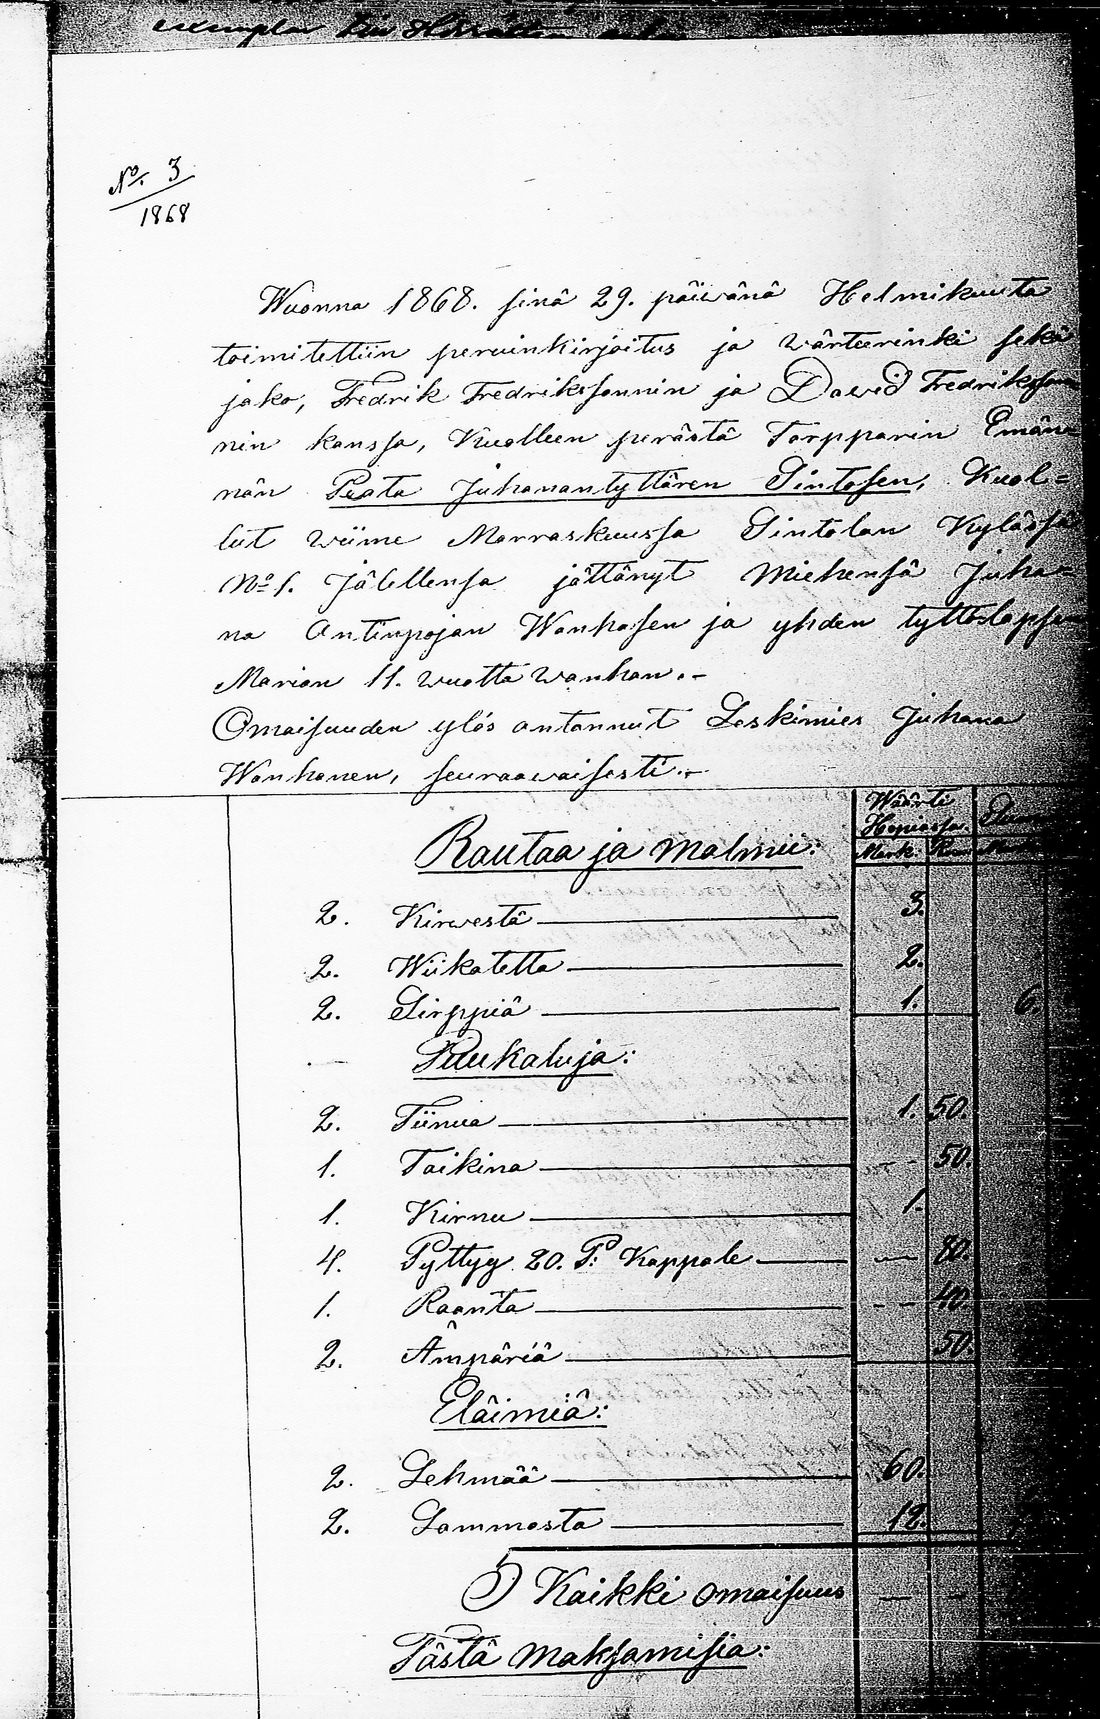 exemplar
No. 3
1868
Wuonna 1868. sinä 29. päiwänä Helmikuuta
toimitettiin peruinkirjoitus ja wärteerinki sekä
jako, Fredrik Fredrikssonnin ja Dawid Fredriksson
nin kanssa, Kuolleen perästä Torpparin Emän
nän Peata Juhanantyttären Sintosen, Kuol=
lut wiime Marraskuussa Sintolan Kylässä
No 1. Jälellensä jättänyt Miehensä Juha=
na Antinpojan Wanhasen ja yhden tyttölapsen
Marian 11. wuotta wanhan.-
Omaisuuden ylös antannut Leskimies Juhana
Wanhanen, seuraawaisesti.-
Wäärti
Hopiassa.
Mark.
Rautaa ja malmii:
2. Kirwestä 3.
2. Wiikatetta 2.
2. Sirppiä 1. 6.
Puukaluja:
2. Tiinua 1. 50.
1. Taikina - - 50.
1. Kirnu 1.
4. Pyttyy 20. P: Kappale - 80.
1. Raanta - - 40.
2. Ämpäriä 50.
Eläimiä:
2. Lehmää 60.
2. Lammasta 12.
Kaikki omaisuus - -
Tästä maksamisia: